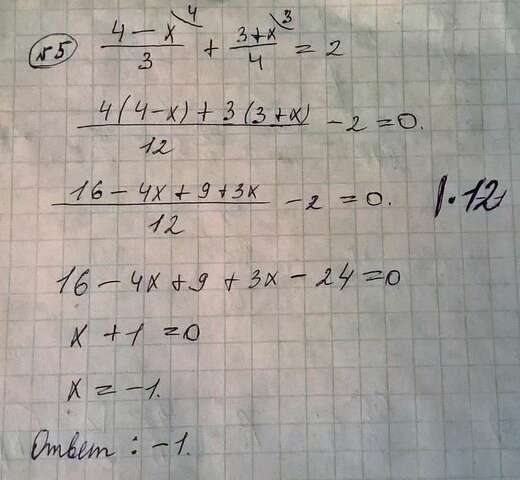 №5 (4 - x)/3 ⁴ + (3 + x)/4 ³ = 2
(4(4-x) + 3(3+x))/12 - 2 = 0.
(16 - 4x + 9 + 3x)/12 - 2 = 0. |·12
16 - 4x + 9 + 3x - 24 = 0
x + 1 = 0
x = -1.
Ответ: -1.